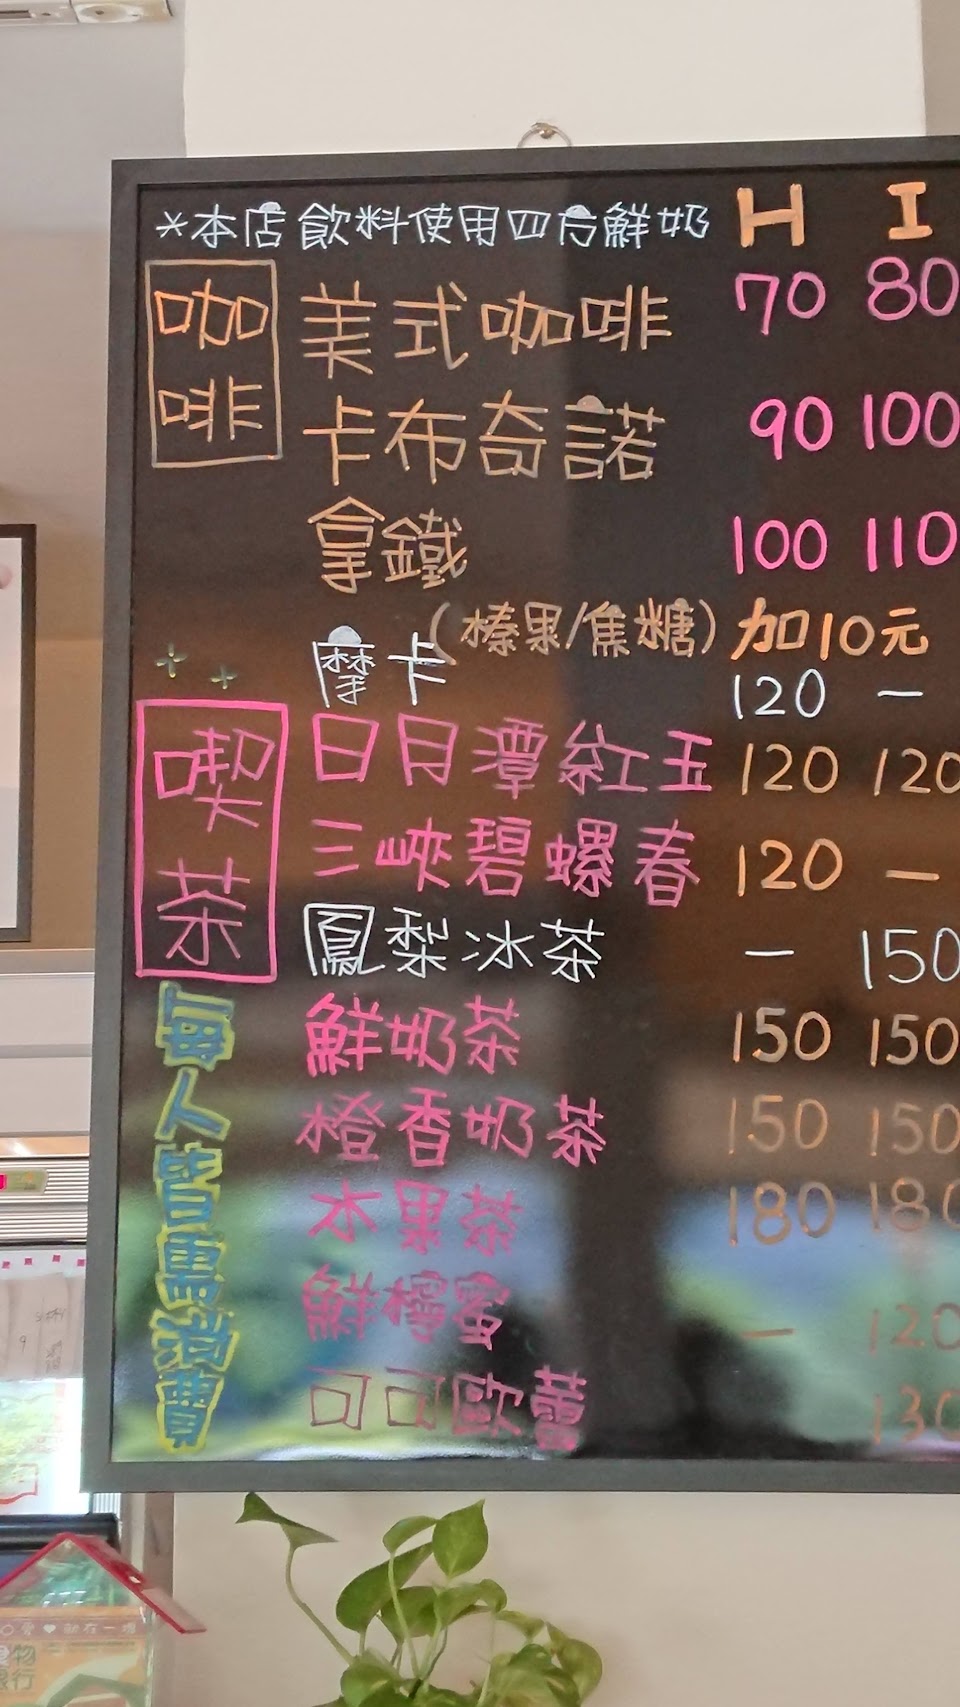 *本店飲料使用四方鮮奶 H I
咖啡
美式咖啡 70 80
卡布奇諾 90 100
拿鐵 100 110
(榛果/焦糖) 加10元
摩卡 120 —
喫茶
日月潭紅玉 120 120
三峽碧螺春 120 —
鳳梨冰茶 — 150
鮮奶茶 150 150
橙香奶茶 150 150
水果茶 180 180
鮮檸蜜 — 120
可可歐蕾 130
每人皆需消費
愛♥動在一起
物
行